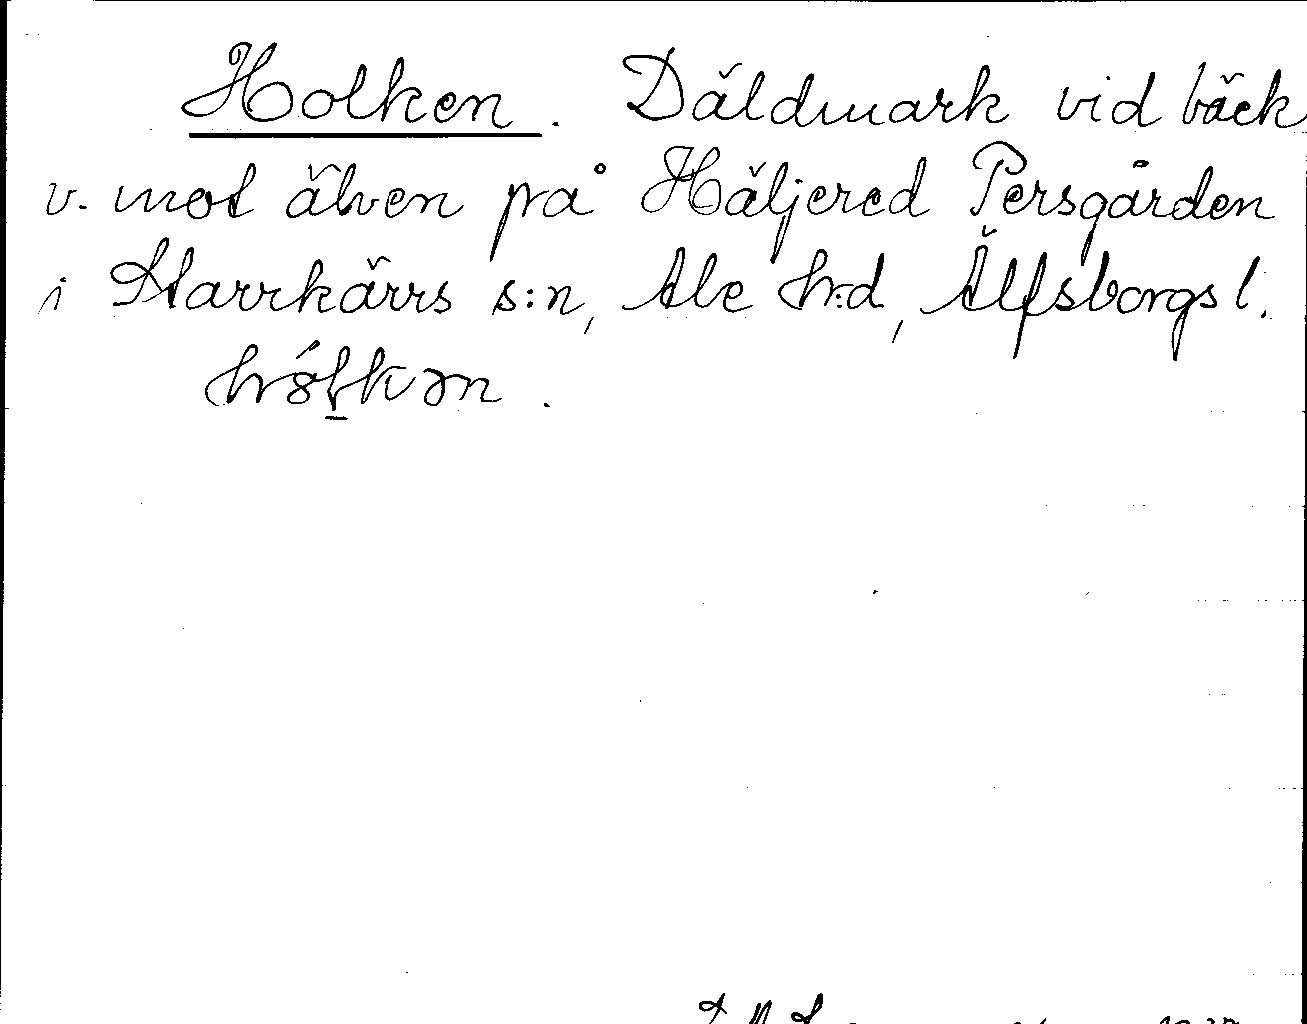 Holken. Däldmark vid bäck
v. mot älven på Häljered Persgården
i Starrkärrs s:n, Ale h:d, Älfsborgs l.
hólkən.